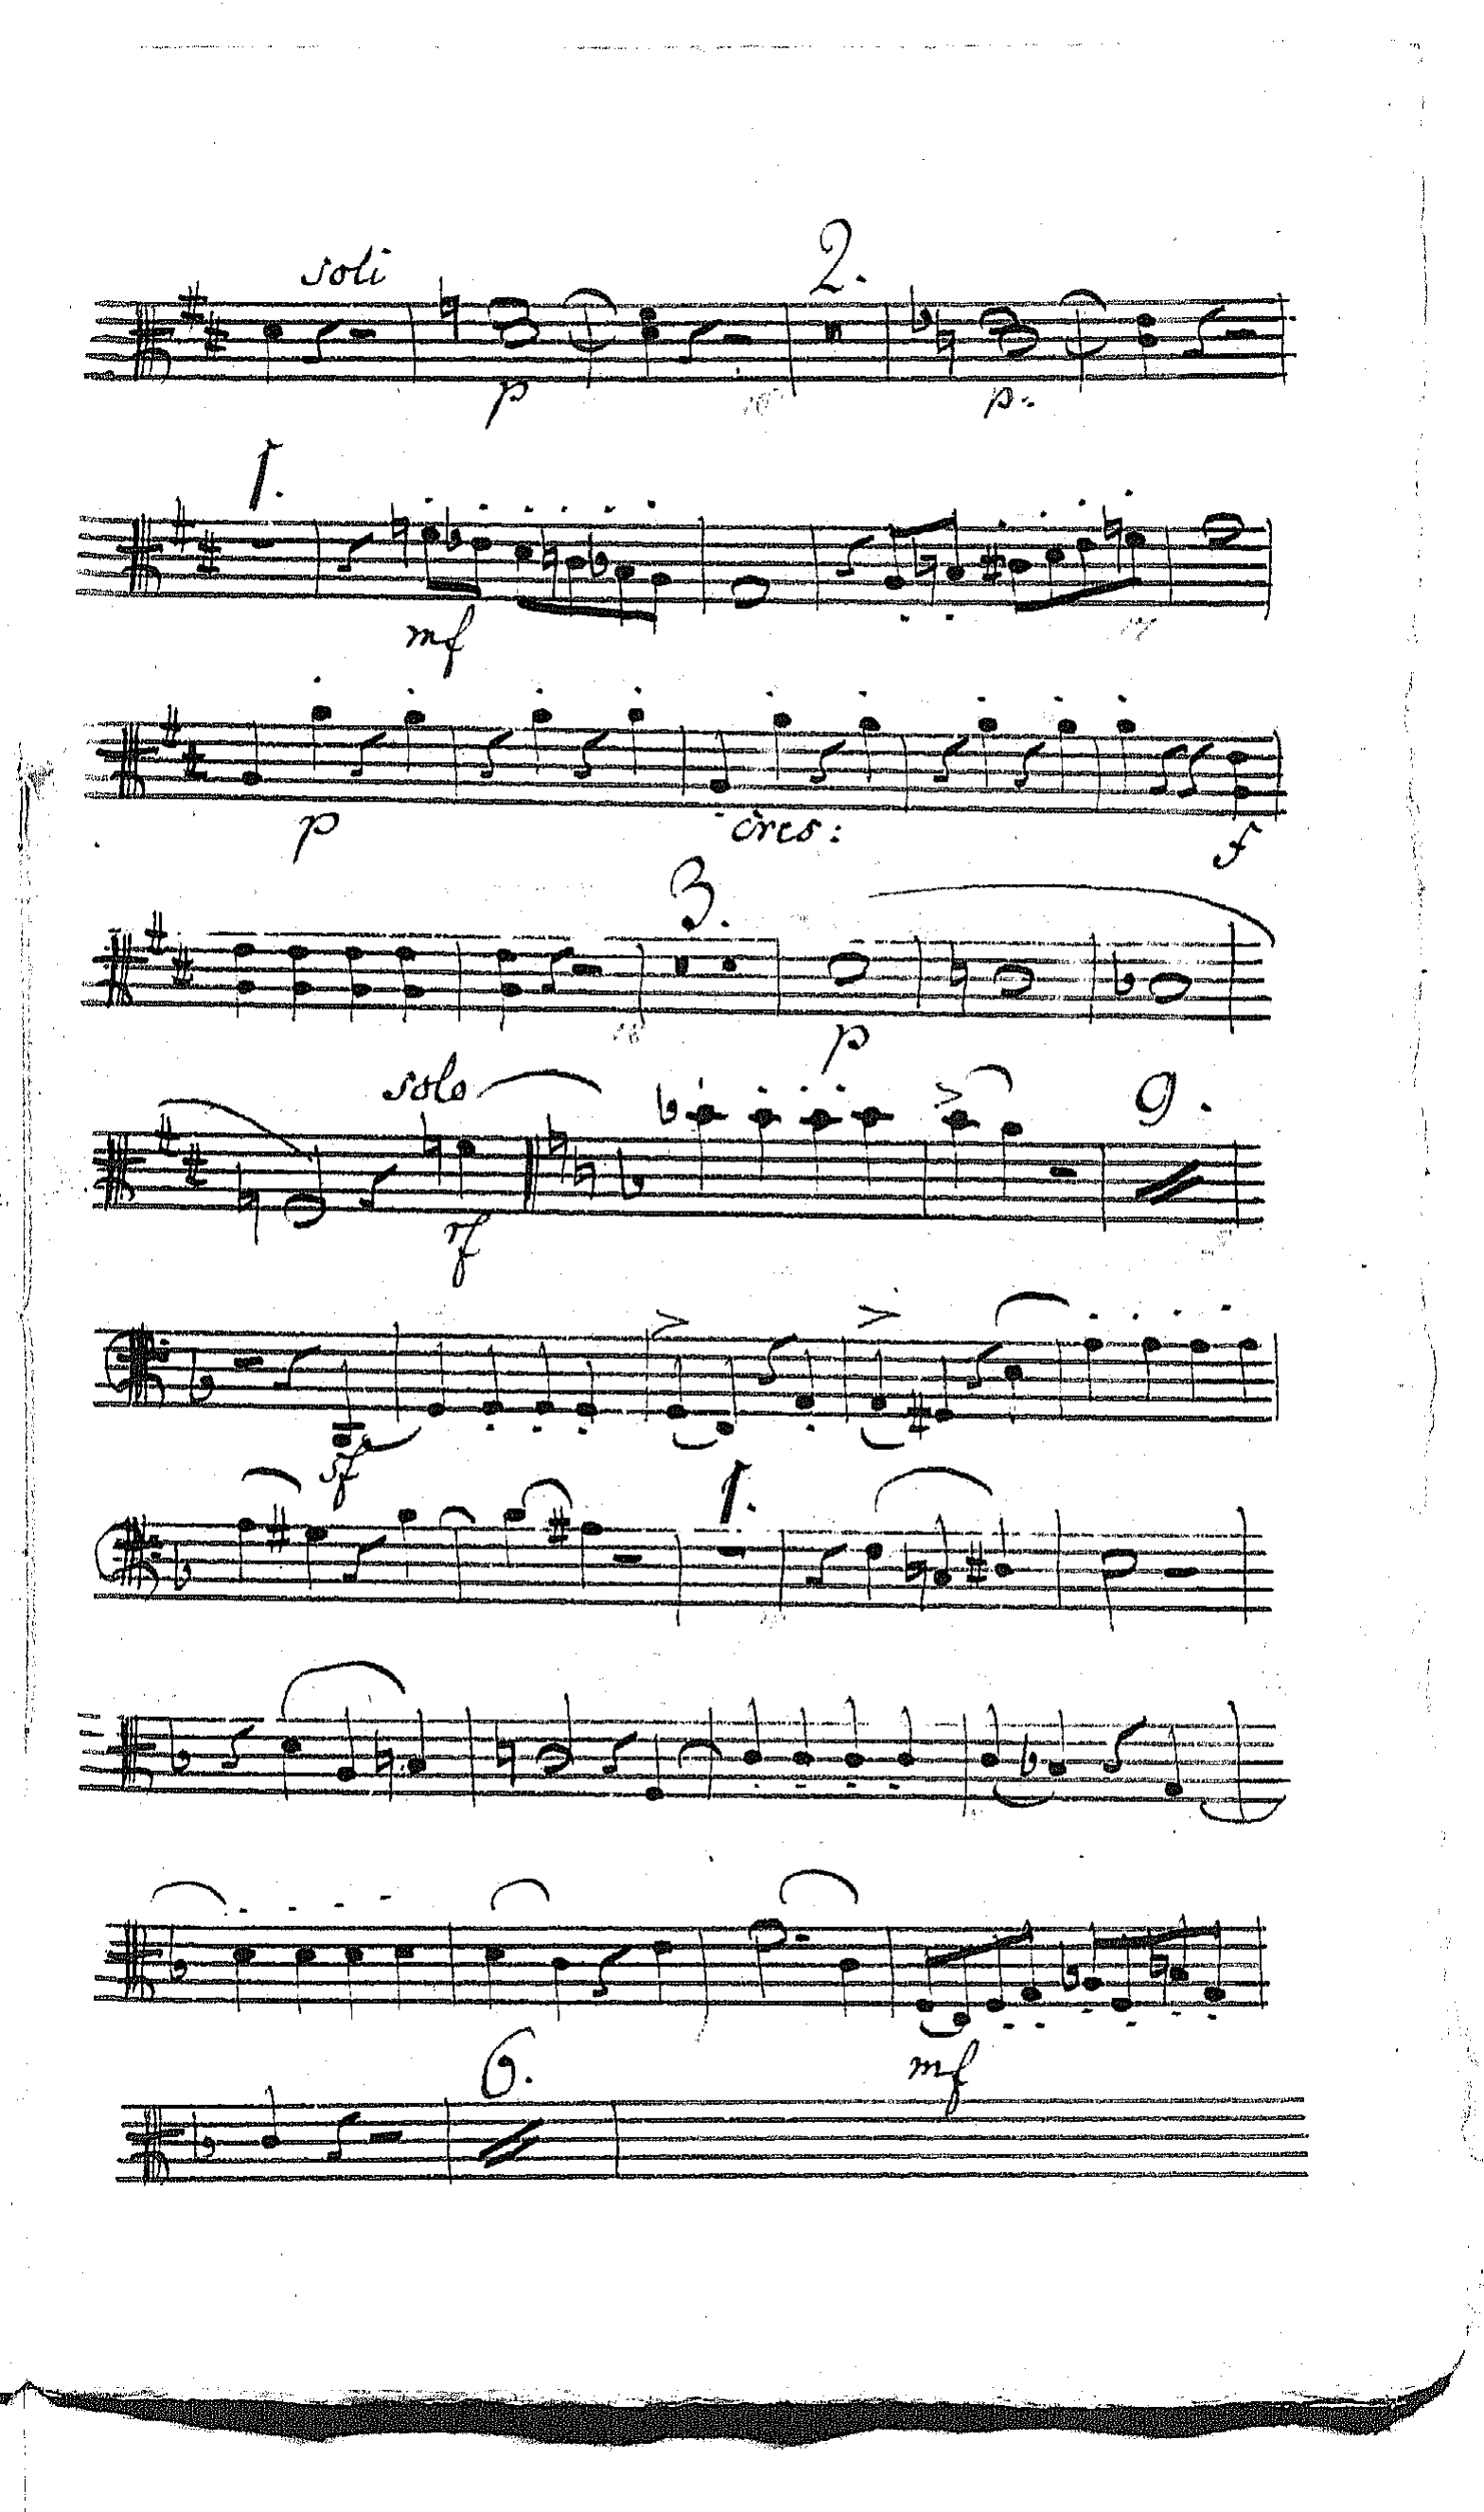 soli 2.
p p.
1.
mf
p cres: f
3.
p
solo 9.
rf
sf
1.
mf
6.